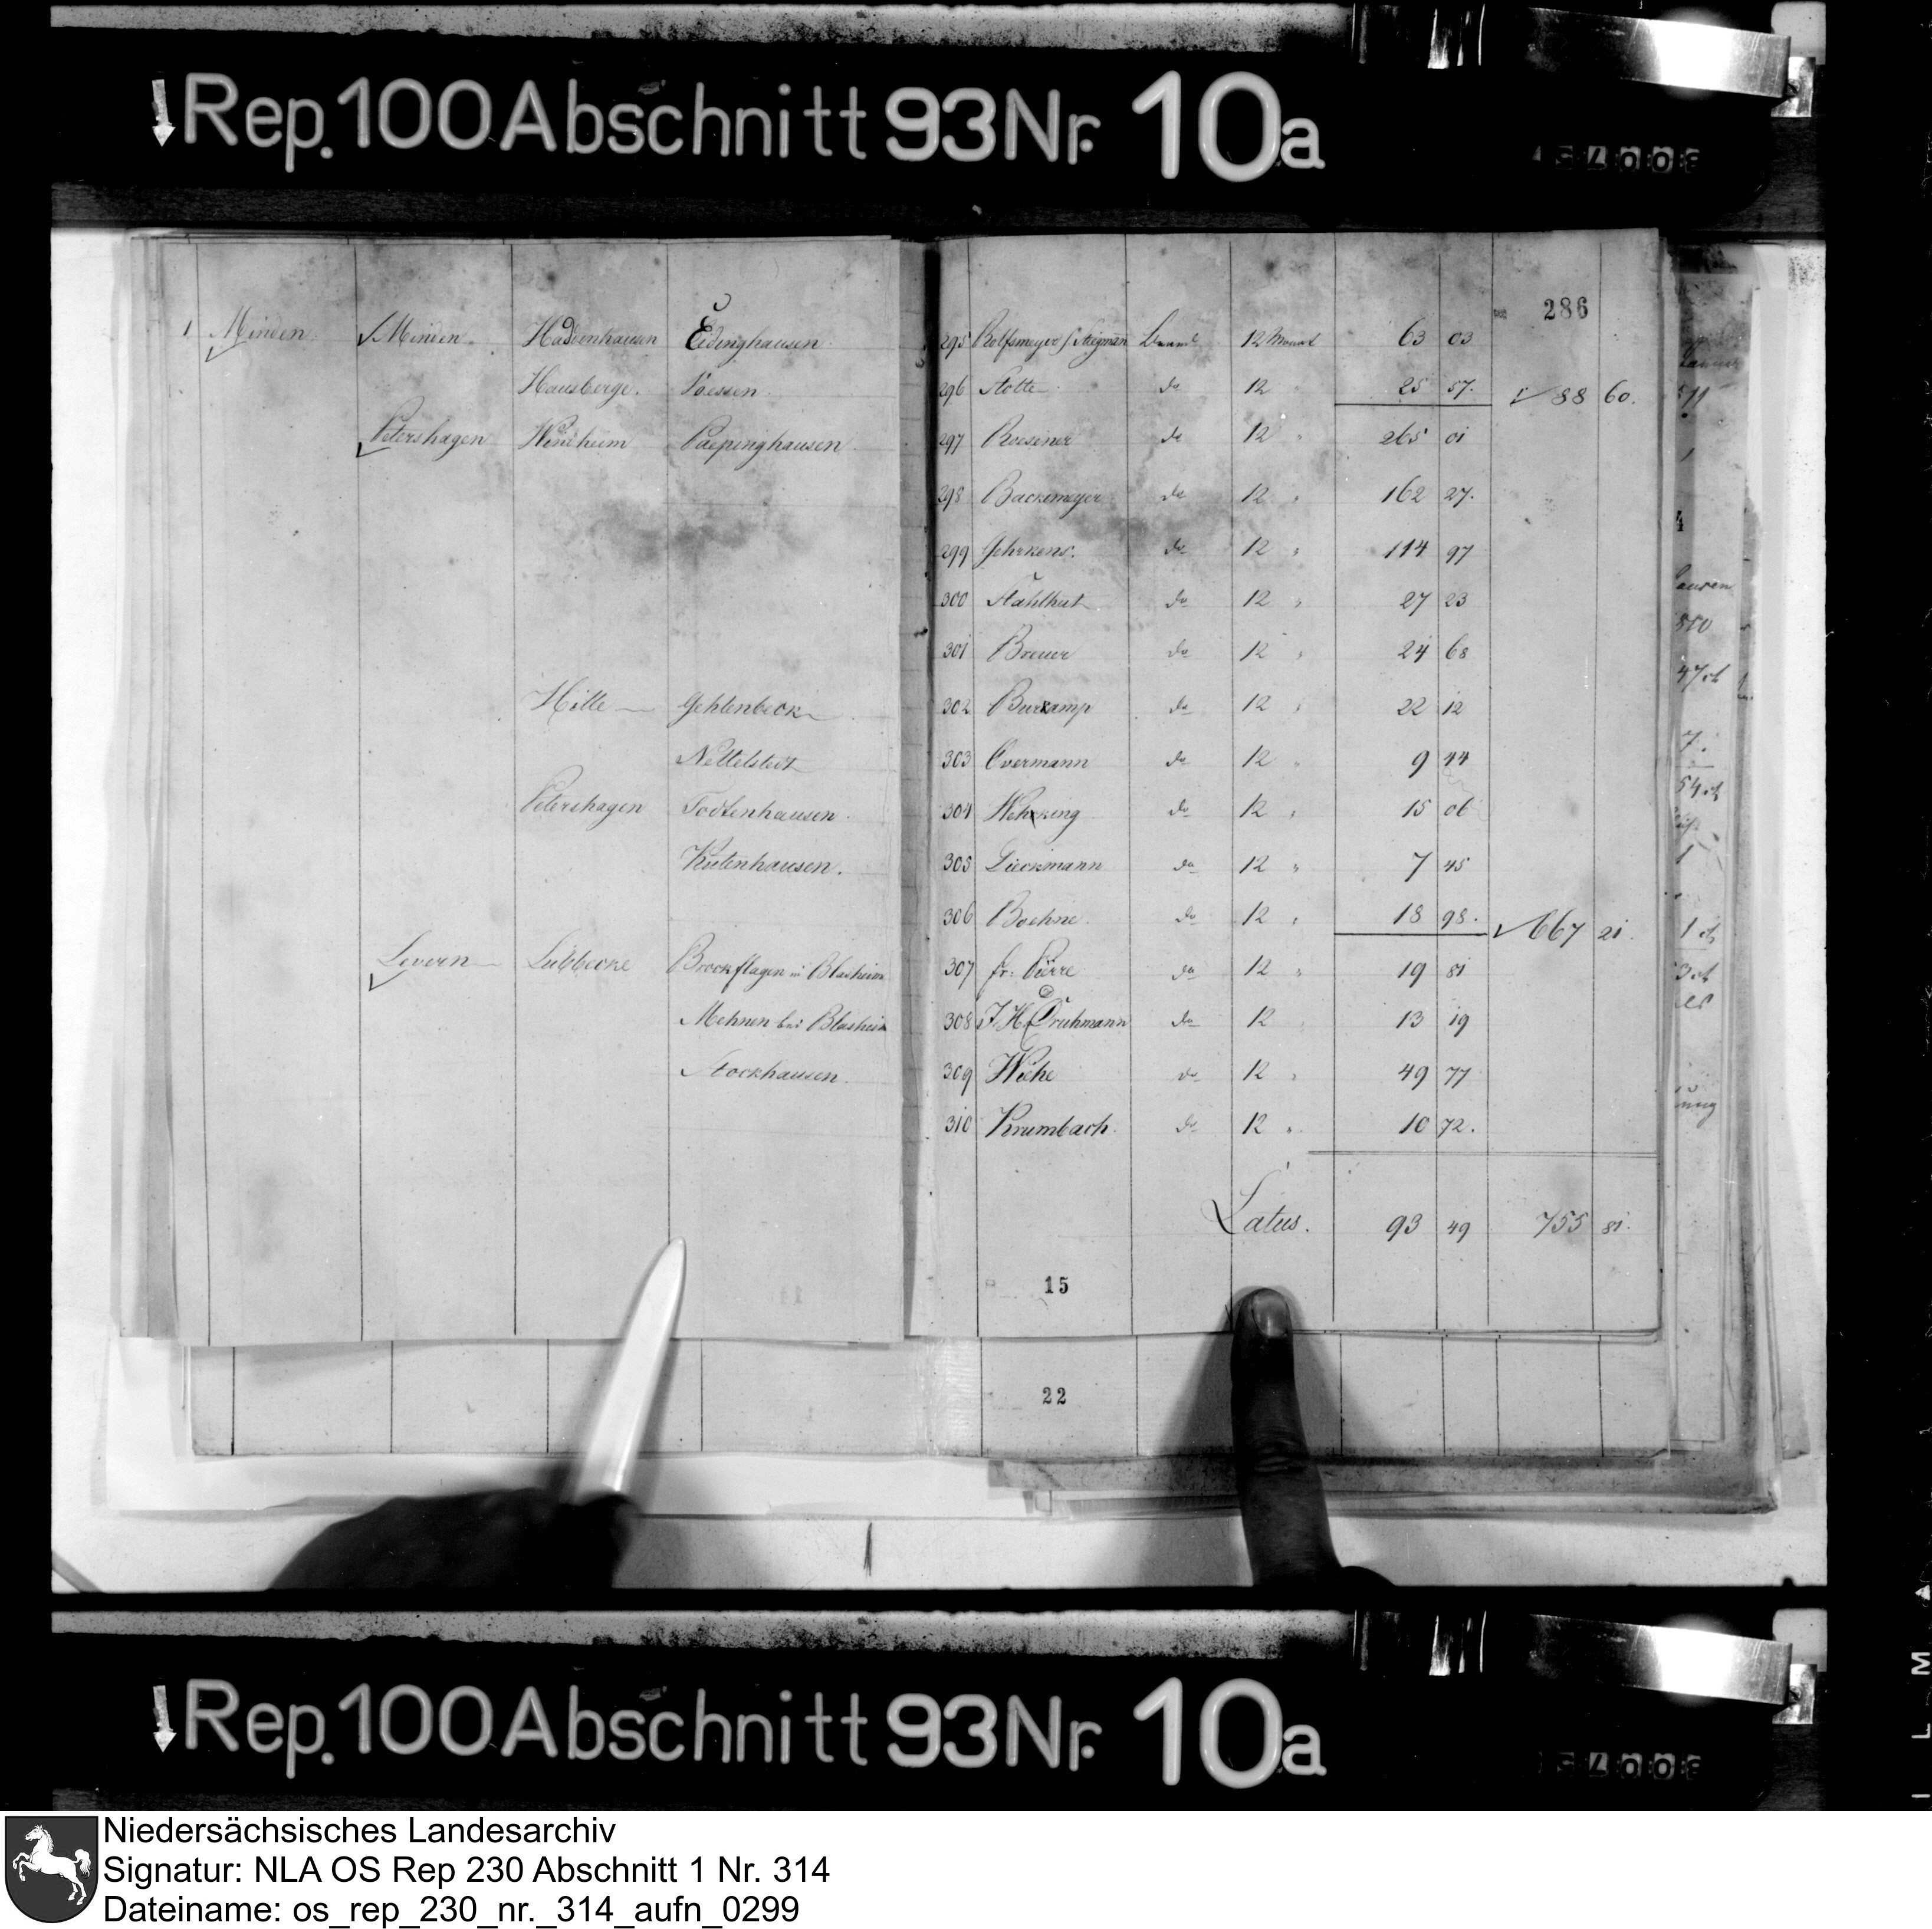 Rep. 100 Abschnitt 93 Nr. 10a
286
1 Minden. Minden. Haddenhausen Eidinghausen. 295 Rolfsmeyer f. Stegman 12 Monat 63 03
Hausberge. 296 Stotte do 12 " 25 57. 88 60.
Petershagen Windheim Paepinghausen 297 Roesener do 12 " 265 01
298 Backemeyer do 12 " 162 27.
299 Gehrkens. do 12 " 114 97
300 Stahlhut do 12 " 27 23
301 Breuer do 12 " 24 68
Hille Gehlenbeck 302 Burkamp do 12 " 22 12
Nettelstedt 303 Overmann do 12 " 9 44
Petershagen Todtenhausen. 304 Wehking do 12 " 15 06
Kutenhausen. 305 Lückmann do 12 " 7 45
306 Boehne. do 12 " 18 98. 667 21.
Levern Lübbecke Brockflagen in Blasheim 307 fr. Pierre do 12 " 19 81
Mehnen bei Blasheim 308 J. H. Druhmann do 12 " 13 19
Stockhausen. 309 Wiehe do 12 " 49 77
310 Krumbach. do 12 " 10 72.
Latus. 93 49 755 81.
15
22
Rep. 100 Abschnitt 93 Nr. 10a
Niedersächsisches Landesarchiv
Signatur: NLA OS Rep 230 Abschnitt 1 Nr. 314
Dateiname: os_rep_230_nr._314_aufn_0299